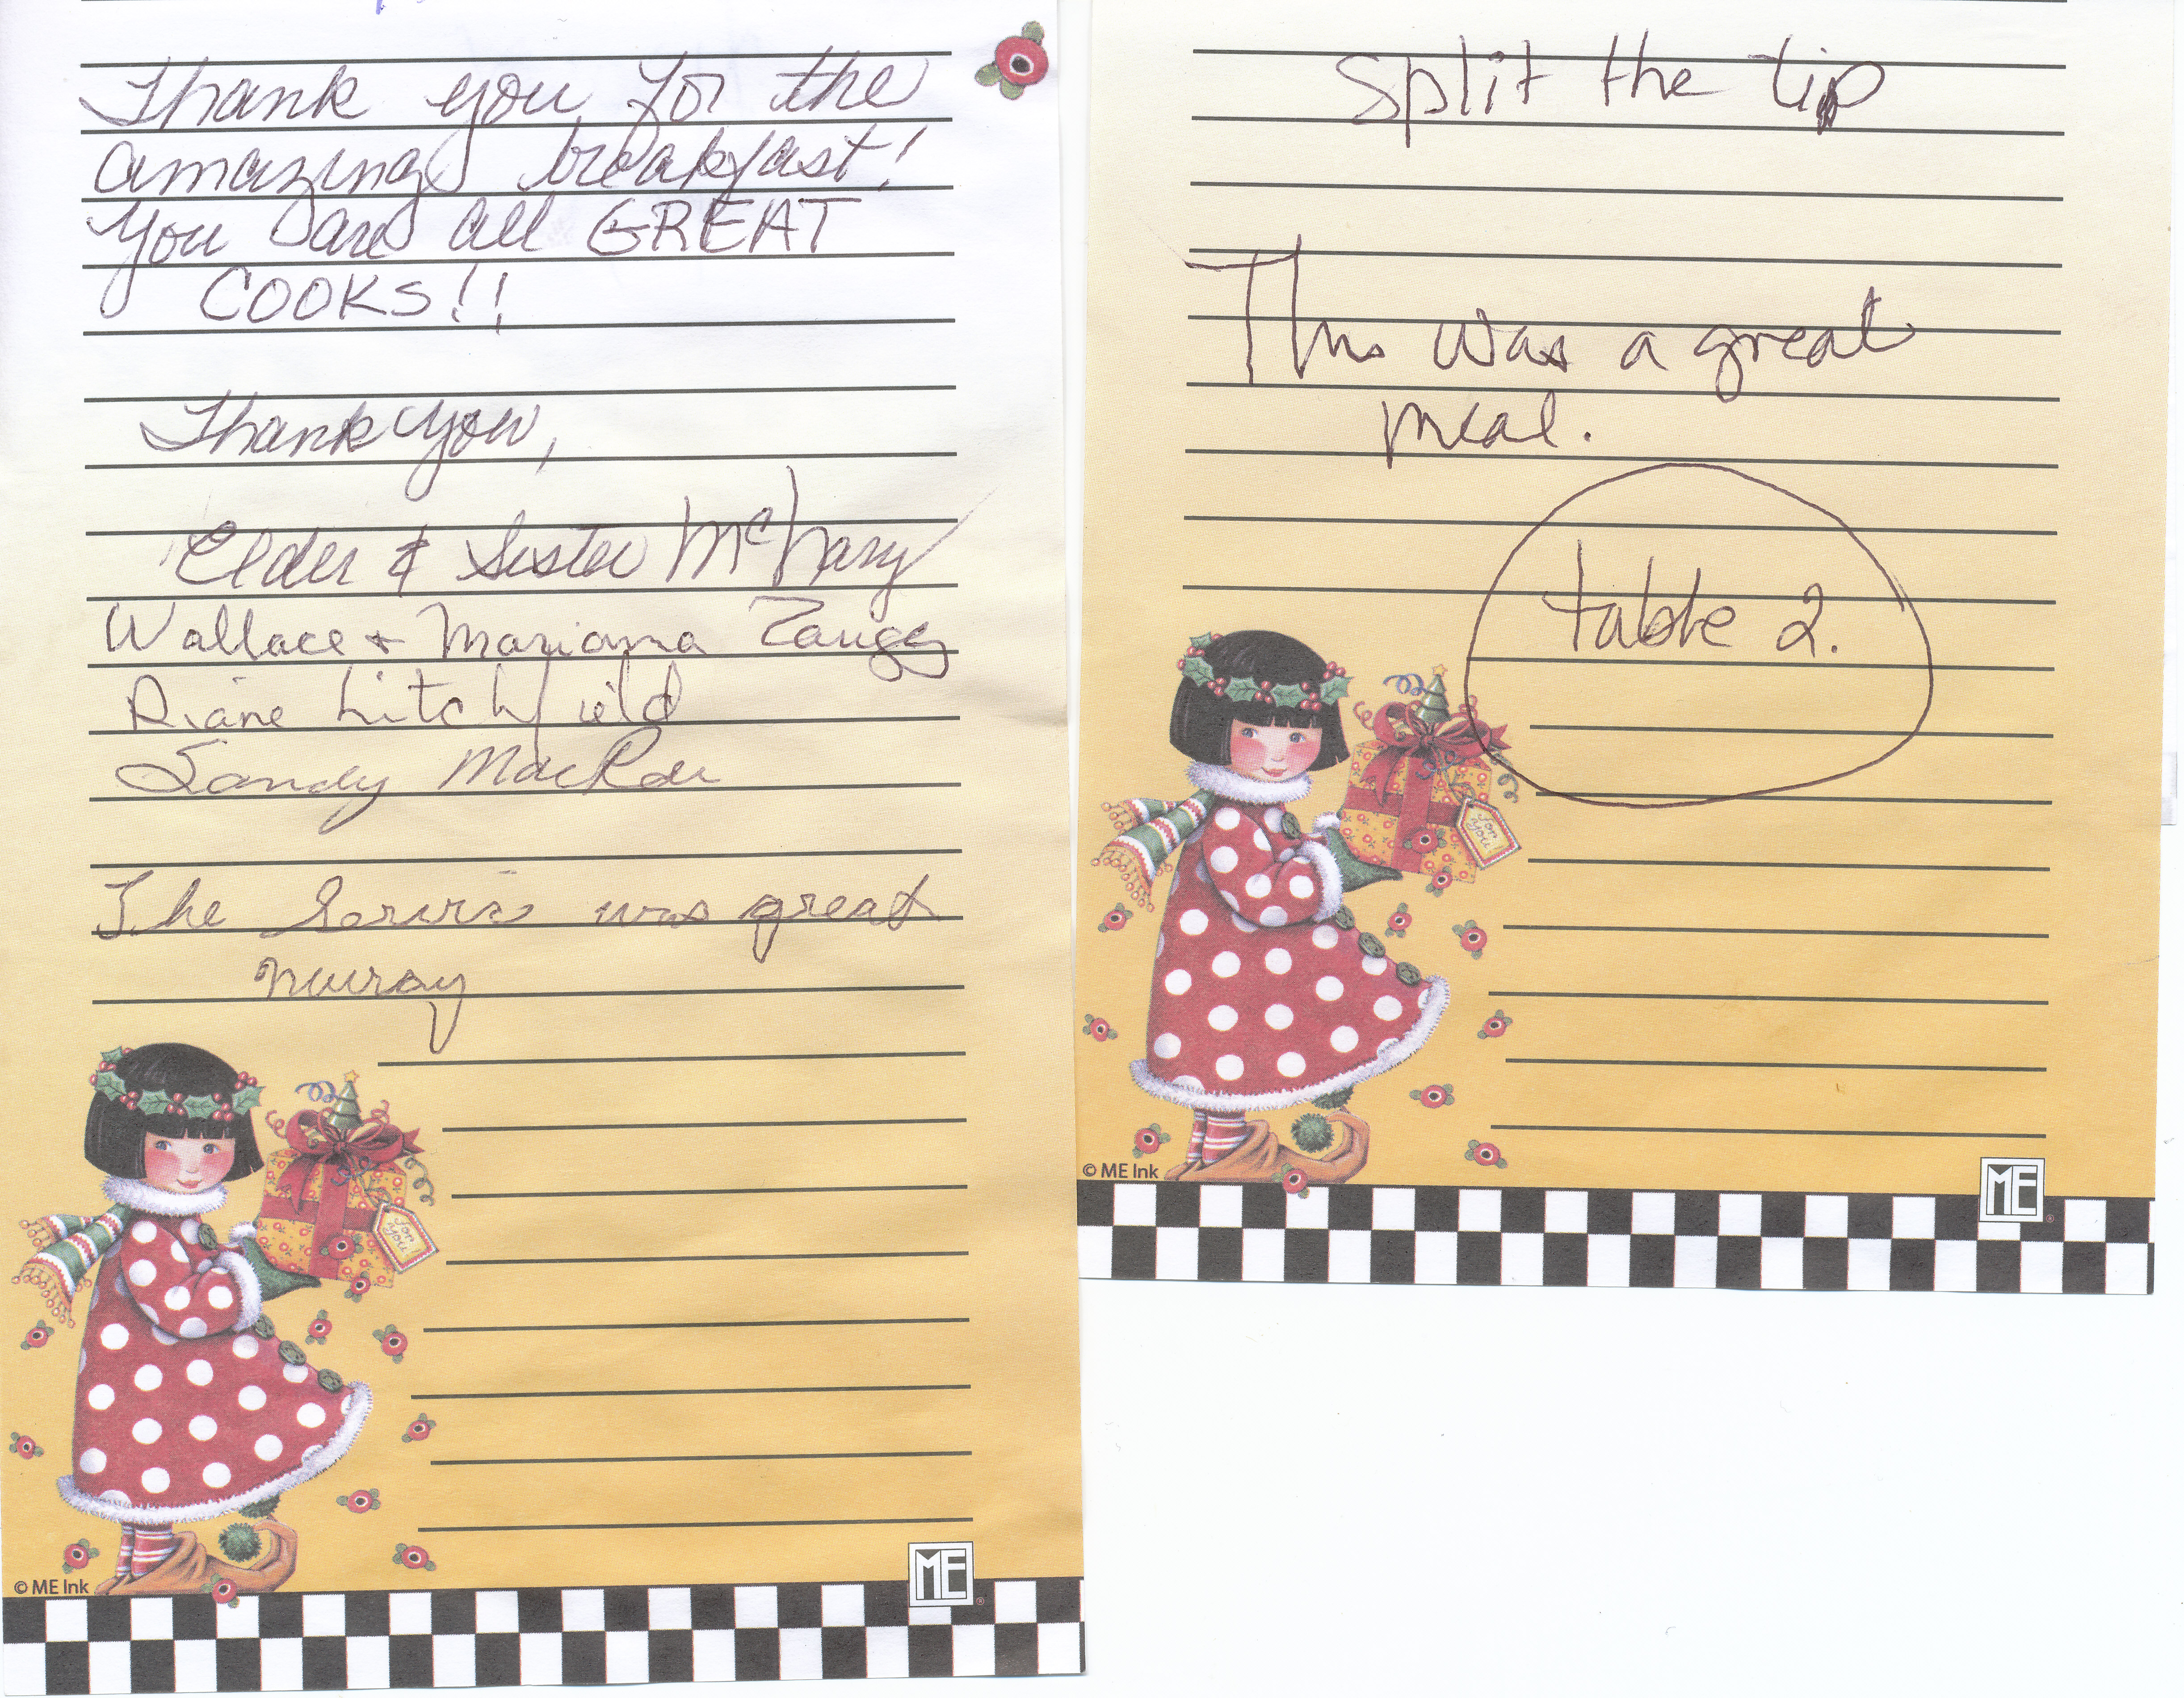 Thank you for the
amazing breakfast!
You are all GREAT
COOKS!!
Thank you,
Elder & Sister McNary
Wallace + Marianna Zaugg
Diane Litchfield
Sandy MacRae
The was great
murray
for you!
© ME Ink
ME
split the tip
This was a great
meal.
table 2.
for you!
© ME Ink
ME